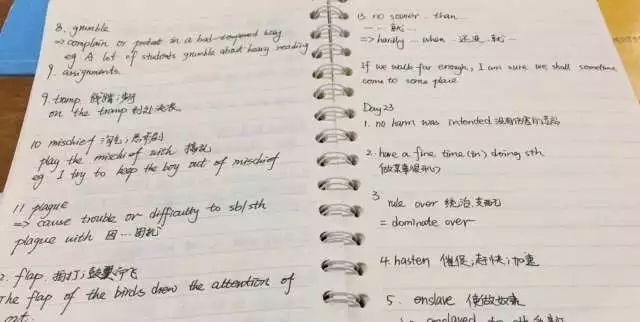 8. grumble
=> complain or protest in a bad-tempered way
eg A lot of students grumble about heavy reading
9. assignments.
9. tramp
on the tramp 到处流浪
10 mischief 淘气;恶作剧
play the mischief with 搞乱
eg I try to keep the boy out of mischief
11 plague
=> cause trouble or difficulty to sb/sth
plague with 因…困扰
2. flap 拍打;鼓翼而飞
The flap of the birds drew the attention of
13 no sooner … than …
一…就…
=> hardly … when … 还没…就…
If we walk far enough, I am sure we shall sometime
come to some place
Day 23
1. no harm was intended
2. have a fine time (in) doing sth
(做某事很开心)
3 rule over 统治,支配
= dominate over
4. hasten 催促;赶快;加速
5. enslave 使做奴隶
enslaved to sth